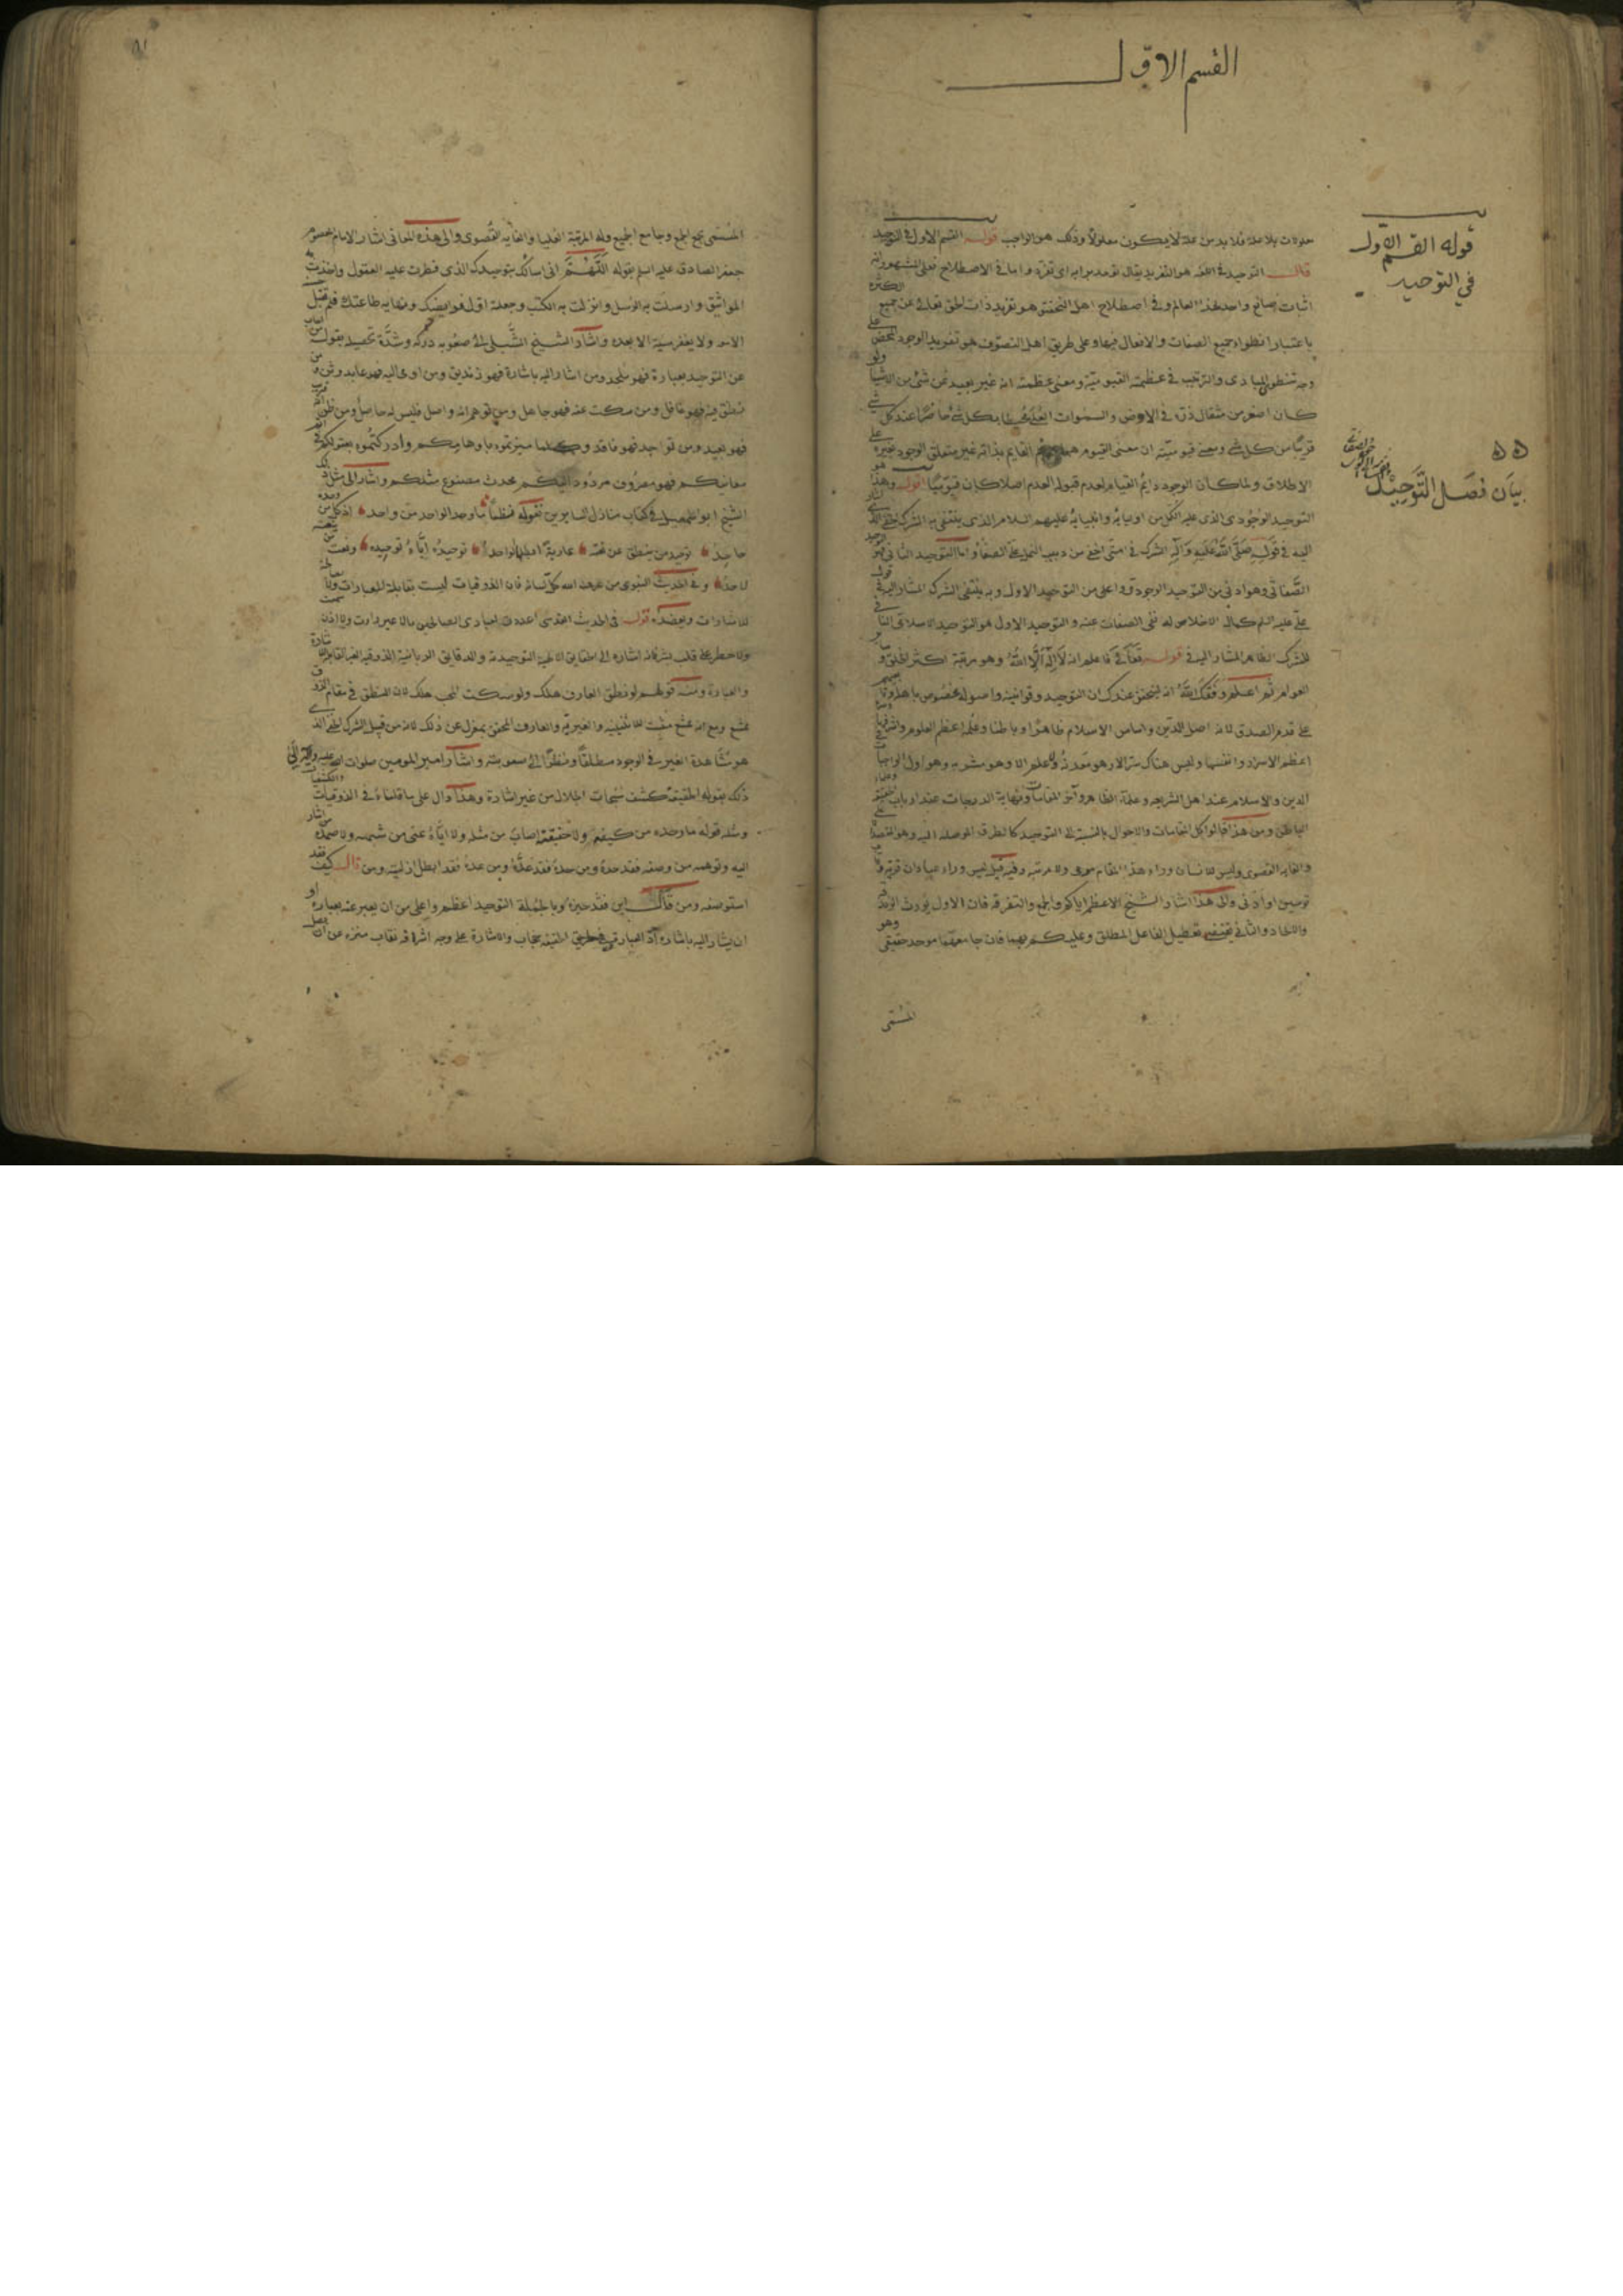 القسم الاول
قوله القسم الاول
في التوحيد
بيان فصل التوحيد
معلولات بلا علة فلا بد من علة لا يكون معلولا وذلك هو الواجب قوله القسم الاول في التوحيد
قال التوحيد في اللغة هو التفريد يقال توحد برايه اى تفرد واما في الاصطلاح فعلى المشهور انه
اثبات صانع واحد لهذا العالم وفي اصطلاح اهل التحقيق هو تفريد ذات الحق تعالى عن جميع الكثرة
باعتبار انطواء جميع الصفات والافعال فيها وعلى طريق اهل التصوف هو تفريد الوجود المحض على
وجه تنطوى المبادى والترتيب في عظمته القيومية ومعنى عظمته انه غير بعيد عن شئ من الاشياء ولو
كان اصغر من مثقال ذرة في الارض والسموات العلى محيطا بكل شئ حاضرا عند كل شئ
قريبا من كل شئ ومعنى قيوميته ان معنى القيوم هو القايم بذاته غير متعلق الوجود بغيره على
الاطلاق ولما كان الوجود دايم القيام لعدم قبوله العدم اصلا كان قيوميا اقول وهذا هو
التوحيد الوجودى الذى عليه الكل من اوليائه وانبيائه عليهم السلام الذى ينتفى به الشرك الخفى المشار
اليه في قوله صلى الله عليه وآله الشرك في امتى اخفى من دبيب النمل على الصفا واما التوحيد الثانى فهو
الصفاتى وهو ادنى من التوحيد الوجودى واعلى من التوحيد الاول وبه ينتفى الشرك المشار اليه في قول
على عليه السلم كمال الاخلاص له نفى الصفات عنه والتوحيد الاول هو التوحيد الاسلامى النافى
للشرك الظاهر المشار اليه في قوله تعالى فاعلم انه لا اله الا الله وهو مرتبة اكثر الخلق و
العوام ثم اعلم وفقك الله انه ليتحقق عندك ان التوحيد وقوانينه واصوله مخصوص باهله
على قدم الصدق لانه اصل الدين واساس الاسلام ظاهرا وباطنا وعلمه اعظم العلوم واشرفها
اعظم الاسرار وانفسها وليس هناك سر الا وهو معدنه ولا علم الا وهو مشربه وهو اول الواجبات
الدين والاسلام عند اهل الشريعة وعلماء الظاهر وآخر المقامات ونهاية الدرجات عند ارباب الحقيقة
الباطن ومن هذا قالوا كل المقامات والاحوال بالنسبة الى التوحيد كالطرق الموصله اليه وهو المقصد
والغاية القصوى وليس للانسان وراء هذا المقام مرمى ولا مرتبة وفيه قيل ليس وراء عبادان قرية
قوسين او ادنى والى هذا اشار الشيخ الاعظم اياكم والجمع والتفرقة فان الاول يورث الزندقة
والالحاد والثانى يقتضى تعطيل الفاعل المطلق وعليكم بهما فان جامعهما موحد حقيقى وهو
المسمى
المسمى بجمع الجمع وجامع الجميع وله المرتبة العليا والغاية القصوى والى هذه المعانى اشار الامام المعصوم
جعفر الصادق عليه السلم بقوله اللهم انى اسالك بتوحيدك الذى فطرت عليه العقول واخذت به
المواثيق وارسلت به الرسل وانزلت به الكتب وجعلته اول فرايضك ونهاية طاعتك فلم تقبل
الا معه ولا يغفر سيئة الا بعده واشار الشيخ الشبلى الى صعوبة دركه وشدة تحصيله بقوله من اجاب
عن التوحيد بعبارة فهو ملحد ومن اشار اليه باشارة فهو زنديق ومن اومى اليه فهو عابد وثن ومن
نطق فيه فهو غافل ومن سكت عنه فهو جاهل ومن توهم انه واصل فليس له حاصل ومن ظن انه قريب
فهو بعيد ومن تواجد فهو فاقد وكلما ميزتموه باوهامكم وادركتموه بعقولكم في اتم
معانيكم فهو مصروف مردود اليكم محدث مصنوع مثلكم واشار الى مثل ذلك
الشيخ ابو اسمعيل في كتاب منازل السايرين بقوله نظما ما وحد الواحد من واحد اذ كل من وحده
جاحد توحيد من ينطق عن نعته عارية ابطلها الواحد توحيده اياه توحيده ونعت من ينعته
لاحد وفي الحديث النبوى من عرف الله كل لسانه فان الذوقيات ليست بقابلة للعبارات ولا
للاشارات ويعضده قوله في الحديث القدسى اعددت لعبادى الصالحين ما لا عين رات ولا اذن سمعت
ولا خطر على قلب بشر فانه اشارة الى الحقايق الالهية التوحيدية والدقايق الربانية الذوقيه الغير القابله للاشارة
والعبارة ومنه قولهم لو نطق العارف هلك ولو سكت المحب هلك لان النطق في مقام الذوق
ممتنع ومع انه ممتنع مثبت للاثنينية والغيرية والعارف المحقق بمعزل عن ذلك لانه من قبيل الشرك الخفى الذى
هو مشاهدة الغير في الوجود مطلقا ونظرا الى صعوبته واشار امير المومنين صلوات الله عليه وآله الى
ذلك بقوله الحقيقة كشف سبحات الجلال من غير اشارة وهذا دال على ما قلناه في الذوقيات والكشفيات
ومثله قوله ما وحده من كيفه ولا حقيقته اصاب من مثله ولا اياه عنى من شبهه ولا صمده من اشار
اليه وتوهمه من وصفه فقد حده ومن حده فقد عده ومن عده فقد ابطل ازليته ومن قال كيف فقد
استوصفه ومن قال اين فقد حيزه وبالجملة التوحيد اعظم واعلى من ان يعبر عنه بعبارة او
ان يشار اليه باشارة اذ العبارة في طريق الحقيقة حجاب والاشارة على وجه اشراقه نقاب منزه عن ان يصل